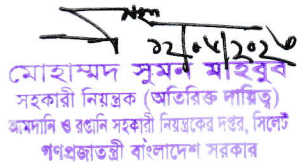 ১২/০৫/২০২৬
মোহাম্মদ সুমন মাহবুব
সহকারী নিয়ন্ত্রক (অতিরিক্ত দায়িত্ব)
আমদানি ও রপ্তানি সহকারী নিয়ন্ত্রকের দপ্তর, সিলেট
গণপ্রজাতন্ত্রী বাংলাদেশ সরকার